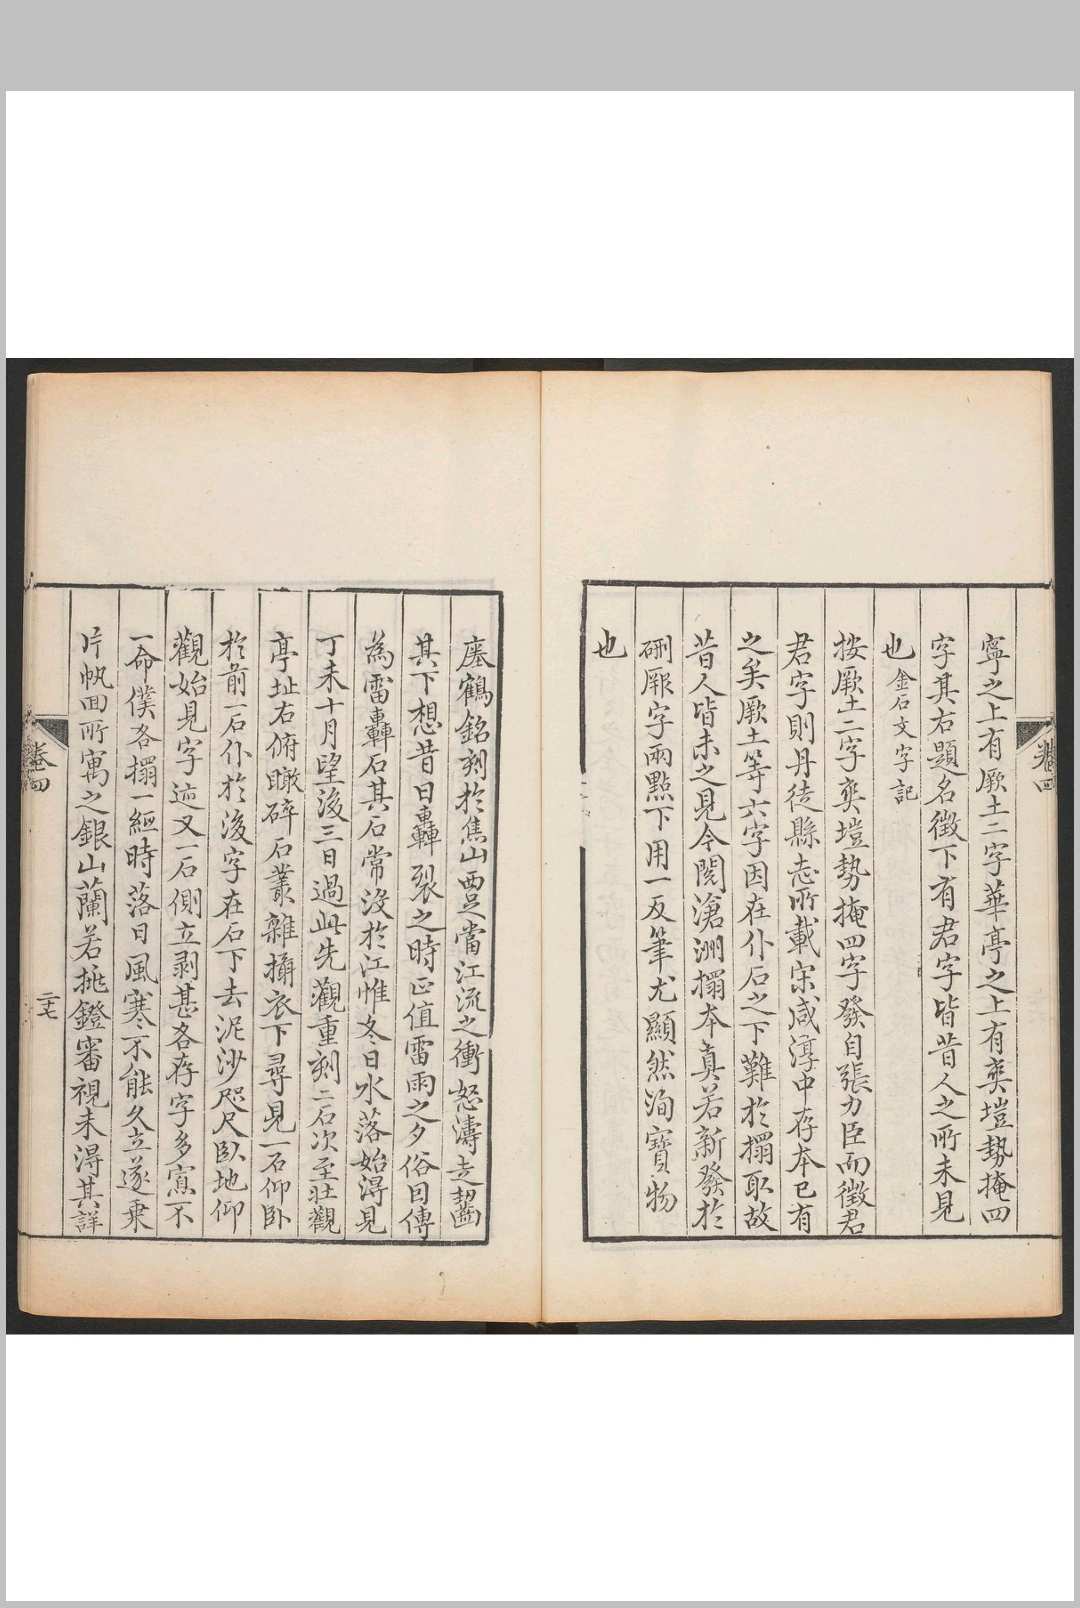 寧之上有厥土二字華亭之上有爽塏勢掩四
字其右題名徵下有君字皆昔人之所未見
也金石文字記
按厥土二字爽塏勢掩四字發自張力臣而徵君
君字則丹徒縣志所載宋咸淳中存本已有
之矣厥土等六字因在仆石之下難於搨取故
昔人皆未之見今閱滄洲搨本真若新發於
硎厥字兩點下用一反筆尤顯然洵寶物
也
卷四
瘞鶴銘刻於焦山西足當江流之衝怒濤走齧
其下想昔日轟裂之時正值雷雨之夕俗因傳
為雷轟石其石常沒於江惟冬日水落始得見
丁未十月望後三日過此先觀重刻二石次至壯觀
亭址右俯瞰碎石叢雜攝衣下尋見一石仰臥
於前一石仆於後字在石下去泥沙咫尺臥地仰
觀始見字迹又一石側立剥甚各存字多寡不
一命僕各搨一紙時落日風寒不能久立遂乘
片帆回所寓之銀山蘭若挑鐙審視未得其詳
卷四
二十七